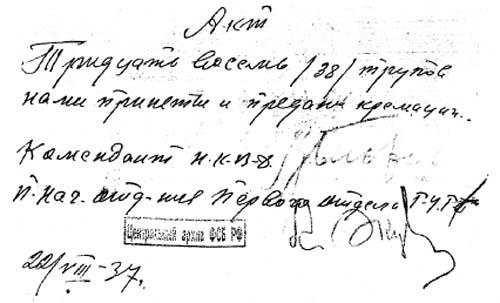 Акт
Тридцать восемь /38/ трупов
нами приняты и преданы кремации.
Комендант Н.К.В-Д.
П. Нач. отд-ния Первого отдела
Центральный архив ФСБ РФ
22/VIII-37.